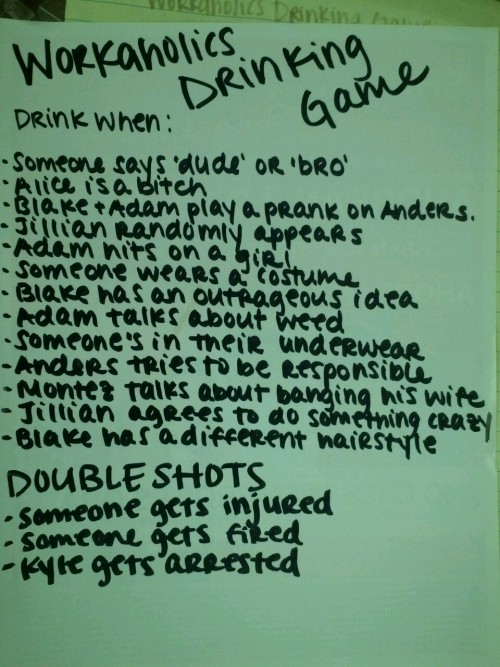 Workaholics Drinking Game
WORKAHOLICS
DRINKING
GAME
DRINK WHEN:
·Someone says 'dude' OR 'bro'
·Alice is a bitch
·Blake + Adam play a prank on Anders.
·Jillian randomly appears
·Adam hits on a girl
·Someone wears a costume
·Blake has an outrageous idea
·Adam talks about weed
·Someone's in their underwear
·Anders tries to be responsible
·Montez talks about banging his wife
·Jillian agrees to do something crazy
·Blake has a different hairstyle
DOUBLE SHOTS
·Someone gets injured
·Someone gets fired
·Kyle gets arrested